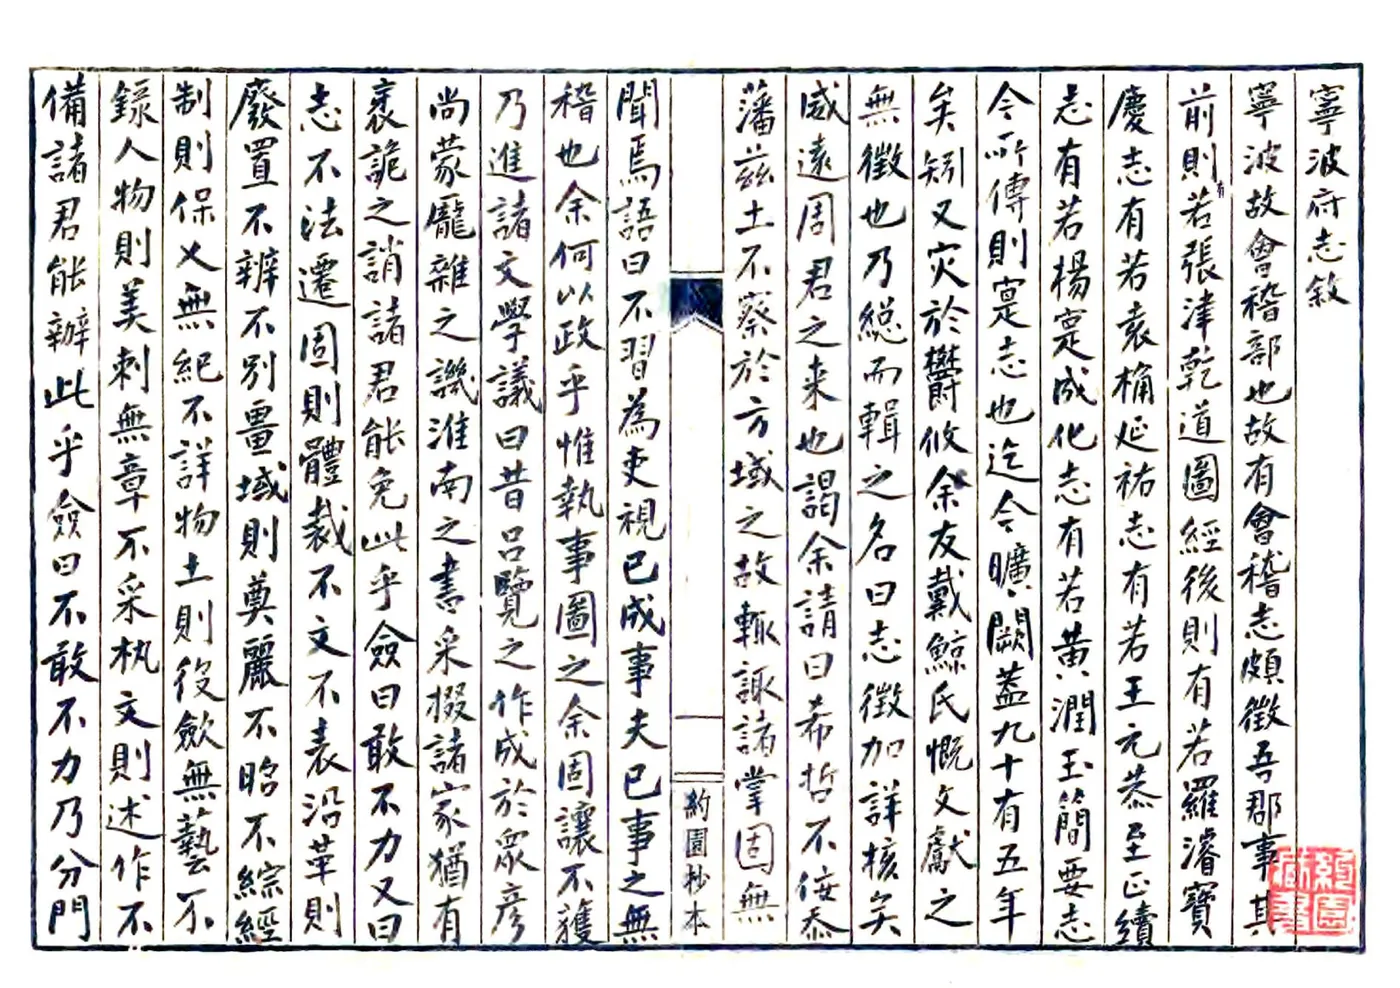 寧波府志敘
寧波故會稽部也故有會稽志頗徵吾郡事其
前則有若張津乾道圖經後則有若羅濬寶
慶志有若袁桷延祐志有若王元恭至正續
志有若楊寔成化志有若黃潤玉簡要志
今所傳則寔志也迄今曠闕蓋九十有五年
矣矧又灾於鬱攸余友戴鯨氏慨文獻之
無徵也乃緫而輯之名曰志徵加詳核矣
威遠周君之来也謁余請曰希哲不佞忝
藩兹土不察於方域之故輙諏諸掌固無
聞焉語曰不習為吏視已成事夫已事之無
稽也余何以政乎惟執事圖之余固讓不獲
乃進諸文學議曰昔吕覽之作成於衆彦
尚蒙龎雜之譏淮南之書采掇諸家猶有
裒詭之誚諸君能免此乎僉曰敢不力又曰
志不法遷固則體裁不文不表沿革則
廢置不辨不别畺域則奠麗不昭不綜經
制則保乂無紀不詳物土則役歛無藝不
錄人物則美刺無章不采執文則述作不
備諸君能辦此乎僉曰不敢不力乃分門
約園抄本